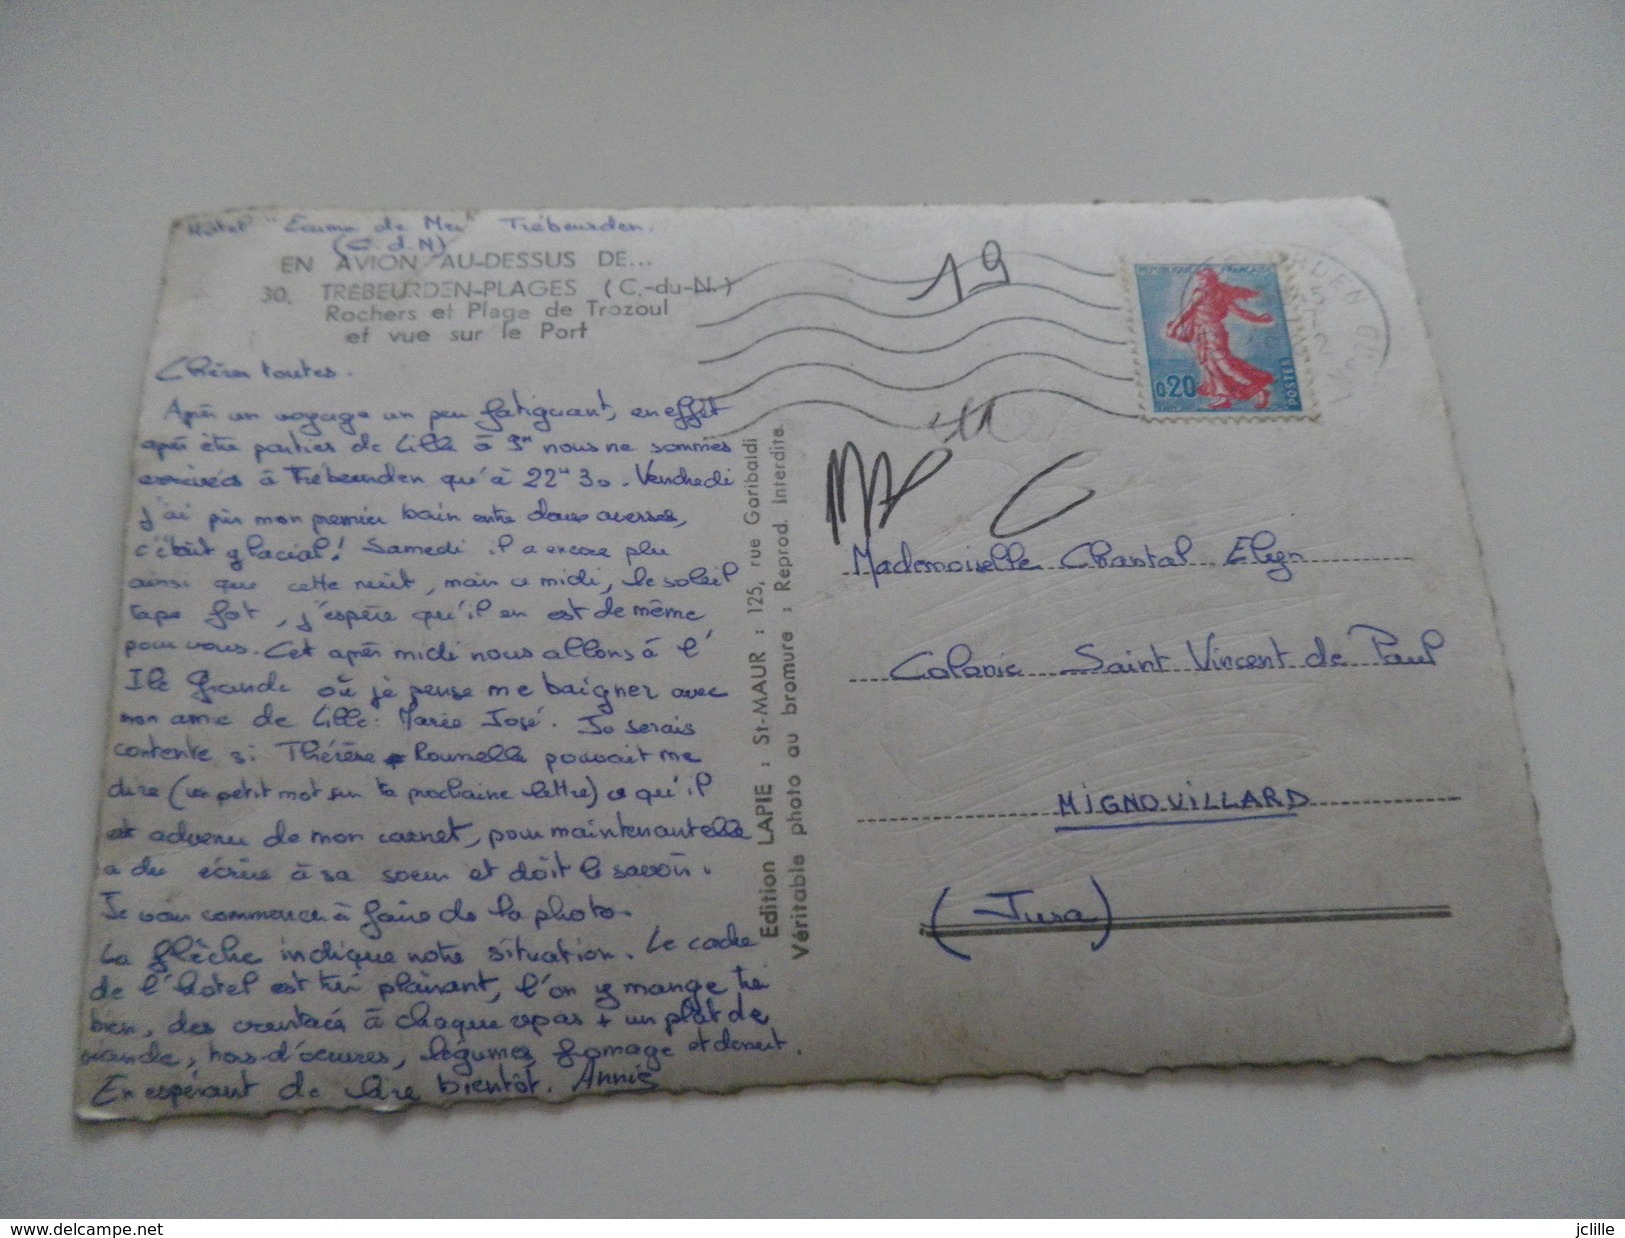 Hôtel "Ecume de Mer" Trébeurden.
(C.d.N)
EN AVION AU-DESSUS DE...
30. TREBEURDEN-PLAGES (C.-du-N.)
Rochers et Plage de Trozoul
et vue sur le Port
Chères toutes.
Après un voyage un peu fatiguant, en effet
après être parties de Lille à 9H nous ne sommes
arrivées à Trébeurden qu'à 22H30. Vendredi
j'ai pris mon premier bain entre deux averses,
c'était glacial! Samedi il a encore plu
ainsi que cette nuit, mais ce midi, le soleil
tape fort, j'espère qu'il en est de même
pour vous. Cet après midi nous allons à l'
Ile Grande où je pense me baigner avec
mon amie de Lille: Marie José. Je serais
contente si Thérèse pouvait me
dire (un petit mot sur ta prochaine lettre) ce qu'il
est advenu de mon carnet, pour maintenant elle
a du écrire à sa soeur et doit le savoir.
Je vais commencer à faire de la photo.
La flèche indique notre situation. Le cadre
de l'hotel est très plaisant, l'on y mange très
bien, des crustacés à chaque repas + un plat de
viande, hors-d'oeuvres, légumes, fromage et dessert.
En espérant de lire bientôt. Annie
Edition LAPIE : St-MAUR : 125, rue Garibaldi
Véritable photo au bromure : Reprod. Interdite
19
REPUBLIQUE FRANÇAISE
0.20
POSTES
Mademoiselle Chantal
Colonie Saint Vincent de Paul
MIGNOVILLARD
(Jura)
www.delcampe.net
jclille